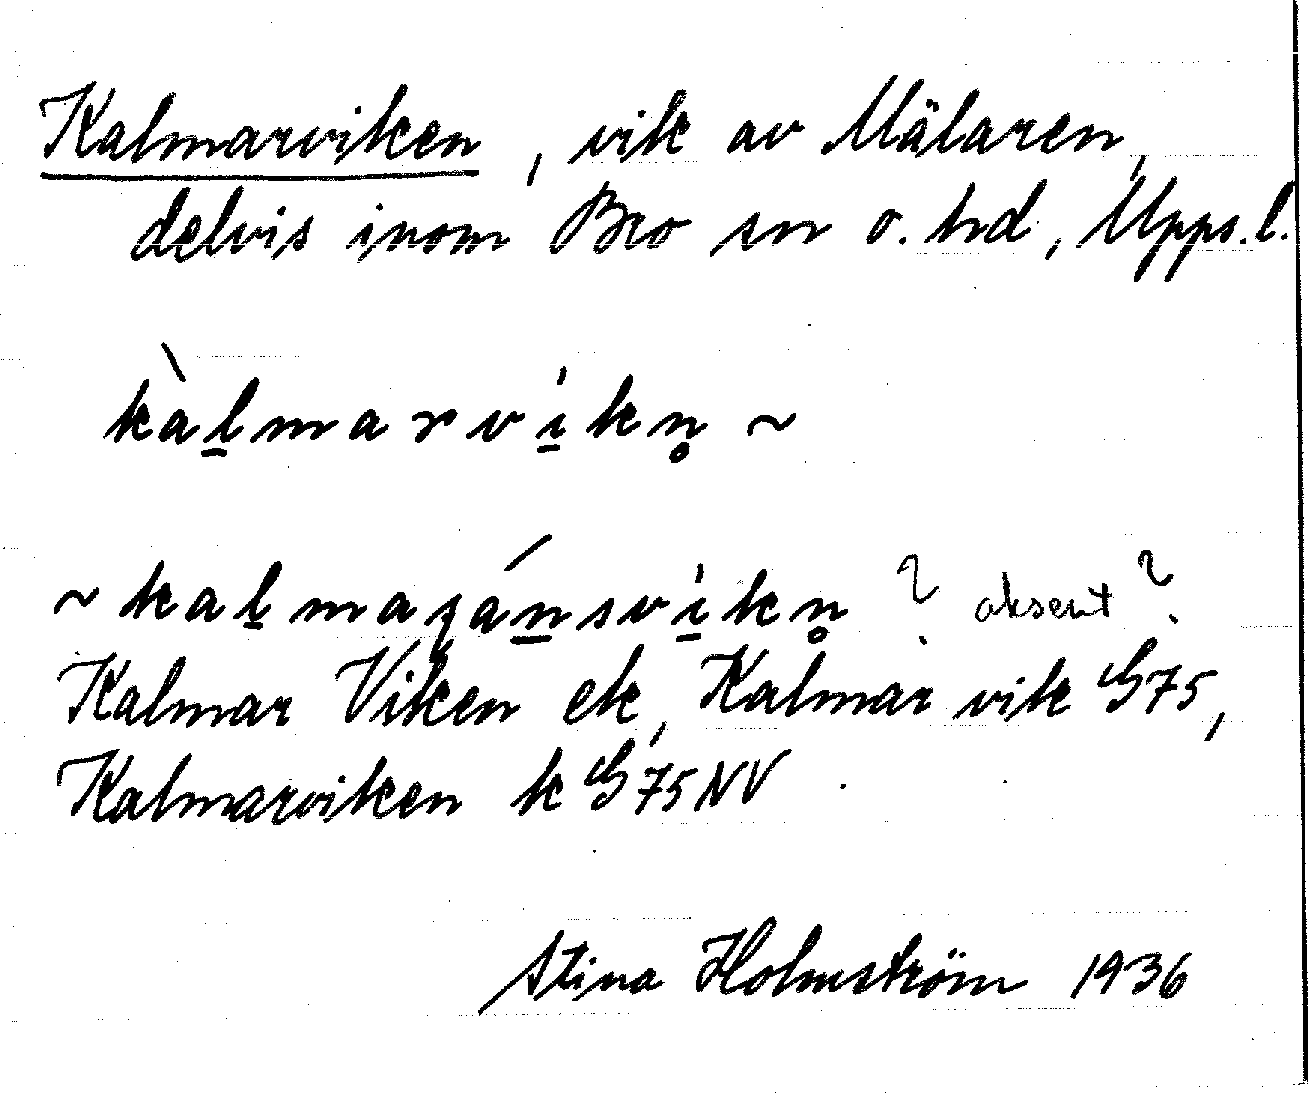 Kalmarviken, vik av Mälaren,
delvis inom Bro sn o. hd, Upps. l.
kàl̠marvi̠̍kn̥ ~
~ kal̠maɼán̠svi̠̍kn̥ ? aksent ?
Kalmar Viken ek, Kalmar vik G75,
Kalmarviken k G75NV
Stina Holmström 1936